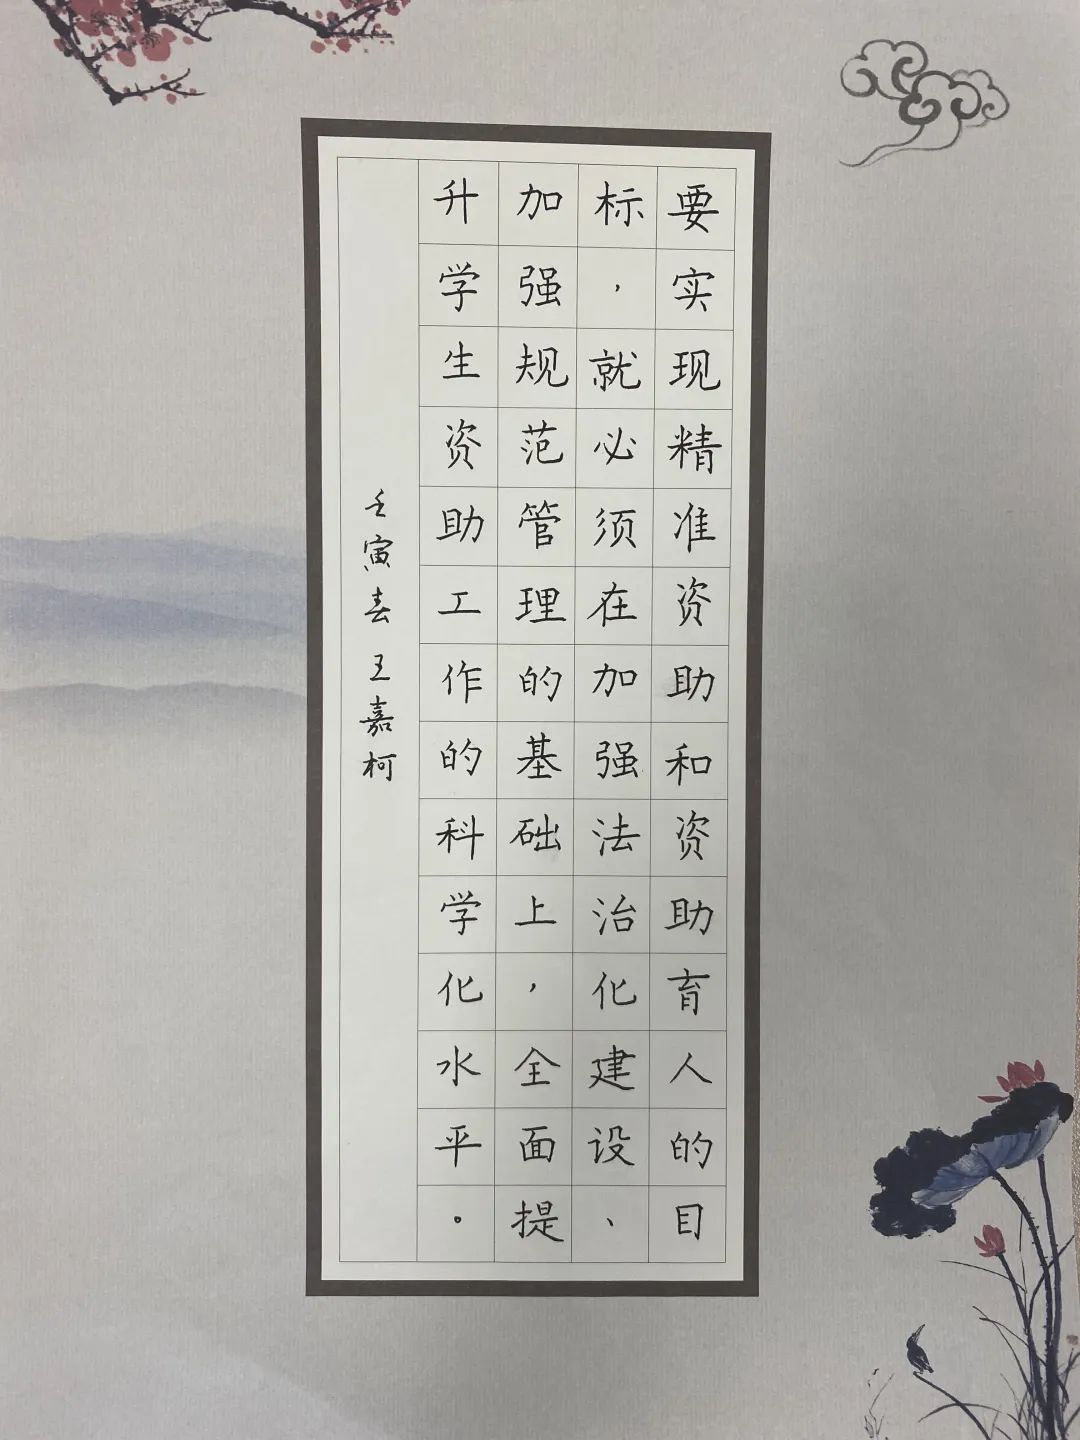 要实现精准资助和资助育人的目
标，就必须在加强法治化建设、
加强规范管理的基础上，全面提
升学生资助工作的科学化水平。
壬寅春 王嘉柯